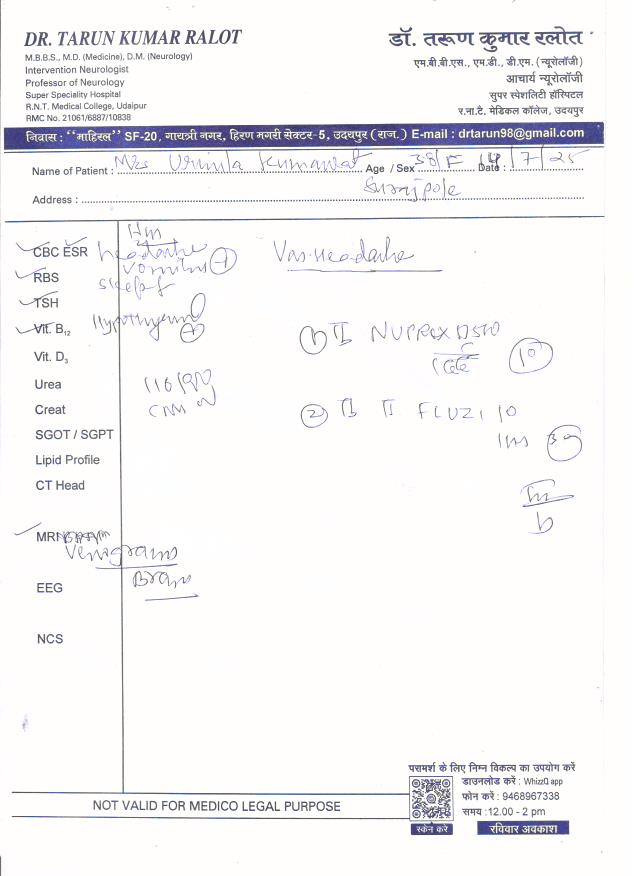 DR. TARUN KUMAR RALOT
M.B.B.S., M.D. (Medicine), D.M. (Neurology)
Intervention Neurologist
Professor of Neurology
Super Speciality Hospital
R.N.T. Medical College, Udaipur
RMC No. 21061/6887/10838
डॉ. तरूण कुमार रलोत
एम.बी.बी.एस., एम.डी., डी.एम. (न्यूरोलॉजी)
आचार्य न्यूरोलॉजी
सुपर स्पेशलिटी हॉस्पिटल
र.ना.टै. मेडिकल कॉलेज, उदयपुर
निवास : "माहिरल" SF-20, गायत्री नगर, हिरण मगरी सेक्टर-5, उदयपुर (राज.) E-mail : drtarun98@gmail.com
Name of Patient : Mrs Urmila Kumawat Age / Sex 38/F Date : 14/7/25
Address : Surajpole
CBC ESR headache
vomiting +
RBS
TSH
Vit. B12
Vit. D3
Urea 116/90
Creat
SGOT / SGPT
Lipid Profile
CT Head
MRI
Venogram
Brain
EEG
NCS
Vas. Headache
1
10
2 FLUZI 10
NOT VALID FOR MEDICO LEGAL PURPOSE
परामर्श के लिए निम्न विकल्प का उपयोग करें
डाउनलोड करें : WhizzQ app
फोन करें : 9468967338
समय : 12.00 - 2 pm
स्कैन करें
रविवार अवकाश